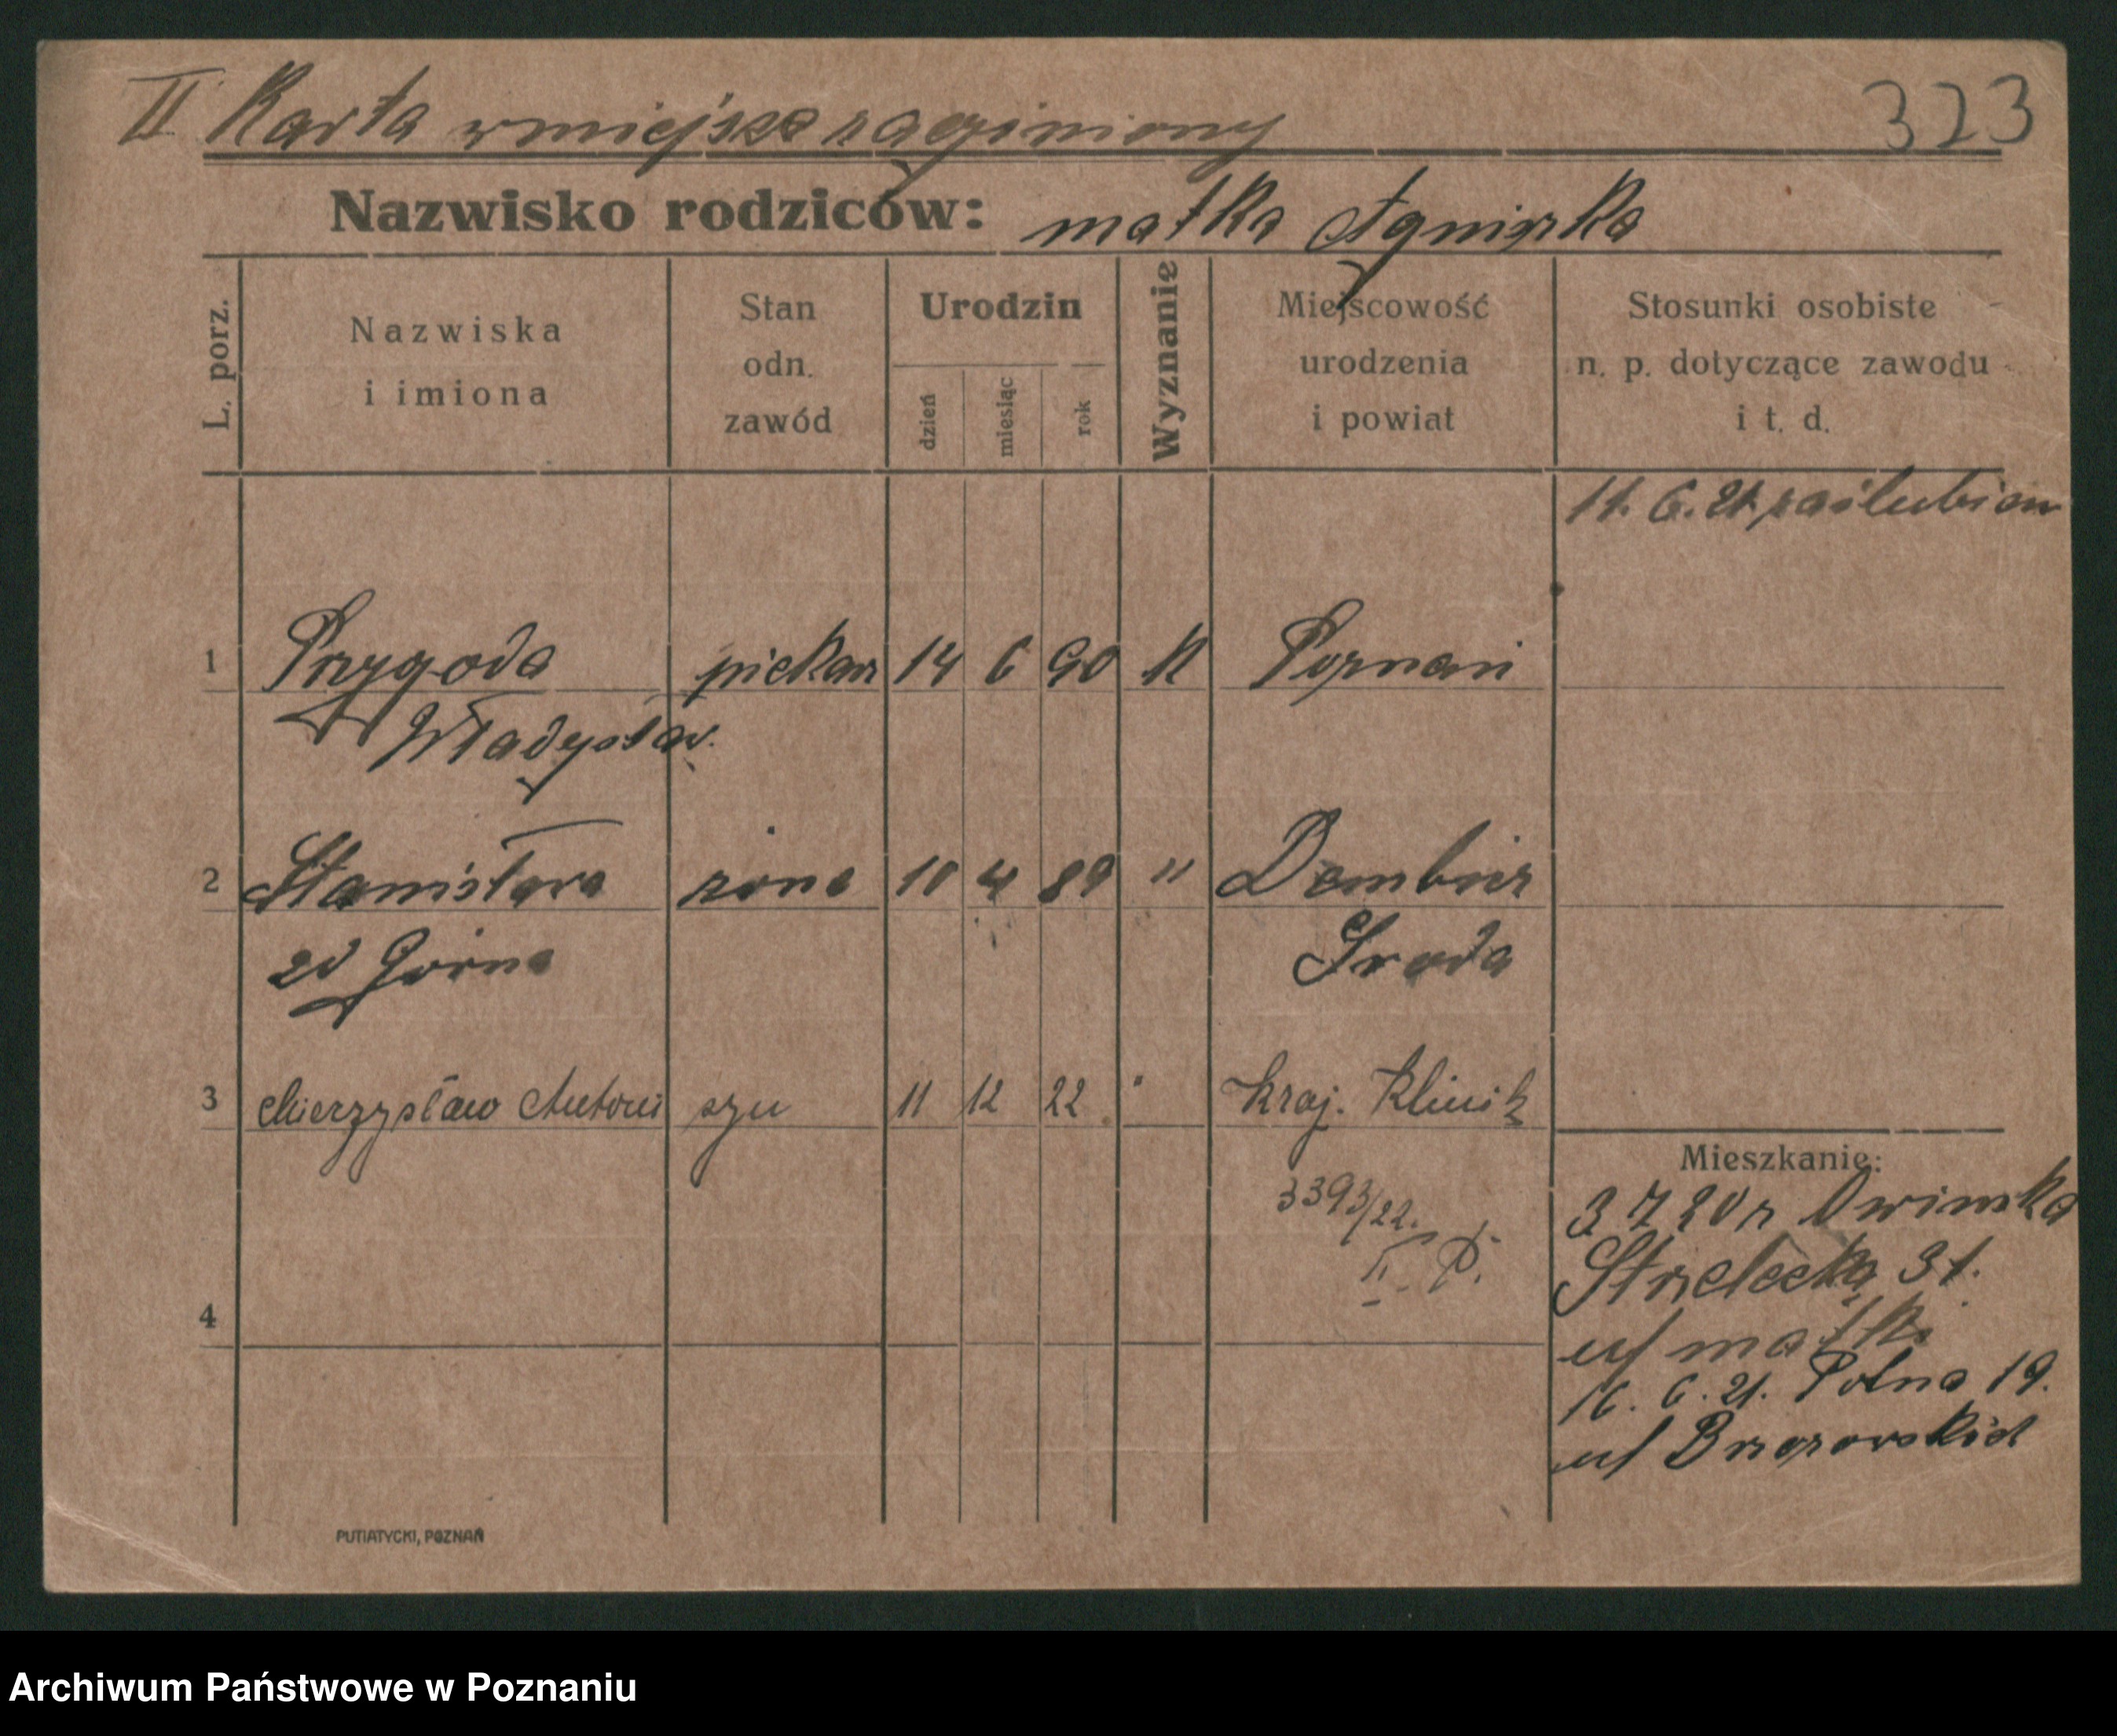 II Karta w miejsce zaginionej
323
Nazwisko rodziców: matka Agnieszka
L. porz.
Nazwiska i imiona
Stan odn. zawód
Urodzin
dzień
miesiąc
rok
Wyznanie
Miejscowość urodzenia i powiat
Stosunki osobiste n. p. dotyczące zawodu i t. d.
11. 6. 21 zaślubieni
1 Przygoda piekarz 14 6 90 K Poznań
Władysław.
2 Stanisława żona 10 4 89 " Dembicz
zd Górna Sroda
3 Mieczysław Antoni syn 11 12 22 " Kraj. Klinik
3393/22.
II. P.
Mieszkanie:
3 7 20 r Owinska
Strzelecka 31.
u/ matki
4
16. 6. 21. Polna 19.
u/ Brzozowskich
PUTIATYCKI, POZNAŃ
Archiwum Państwowe w Poznaniu